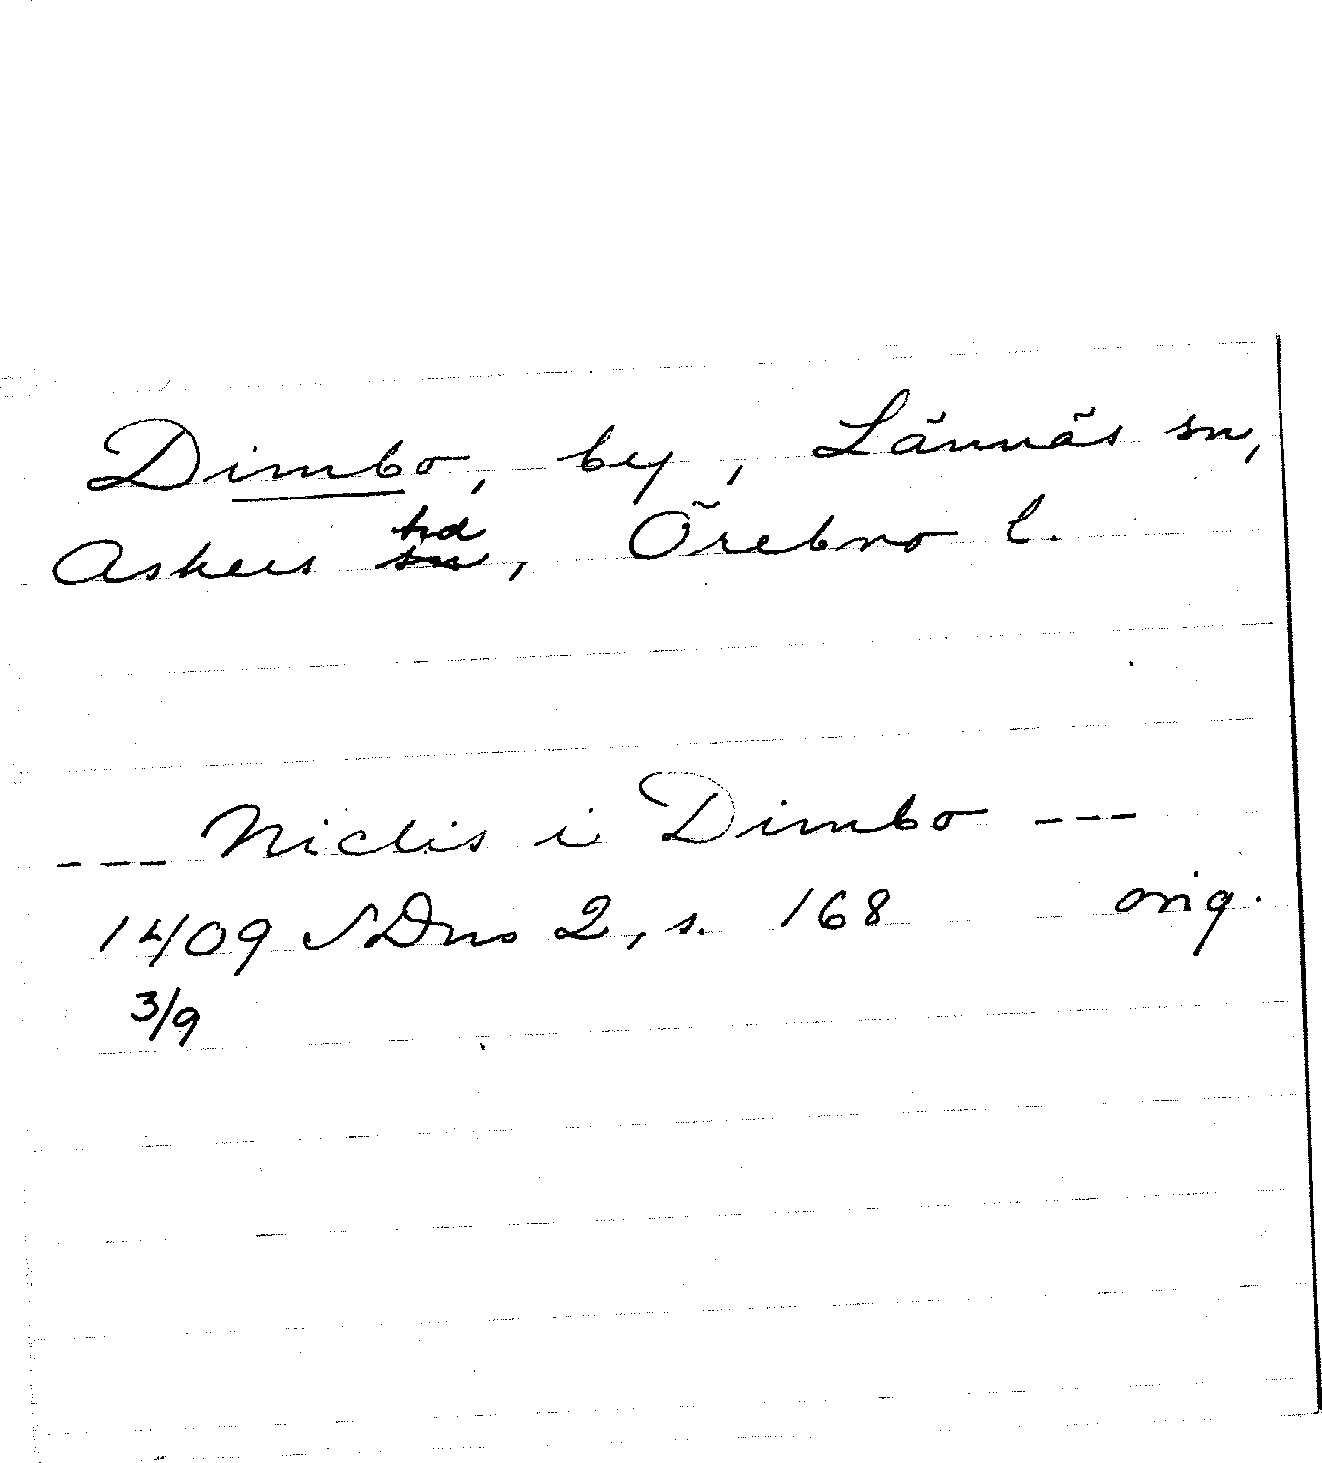 Dimbo, by, Lännäs sn,
Askers hd, Örebro l.
--- Niclis i Dimbo ---
1409 SDns 2, s. 168 orig.
3/9